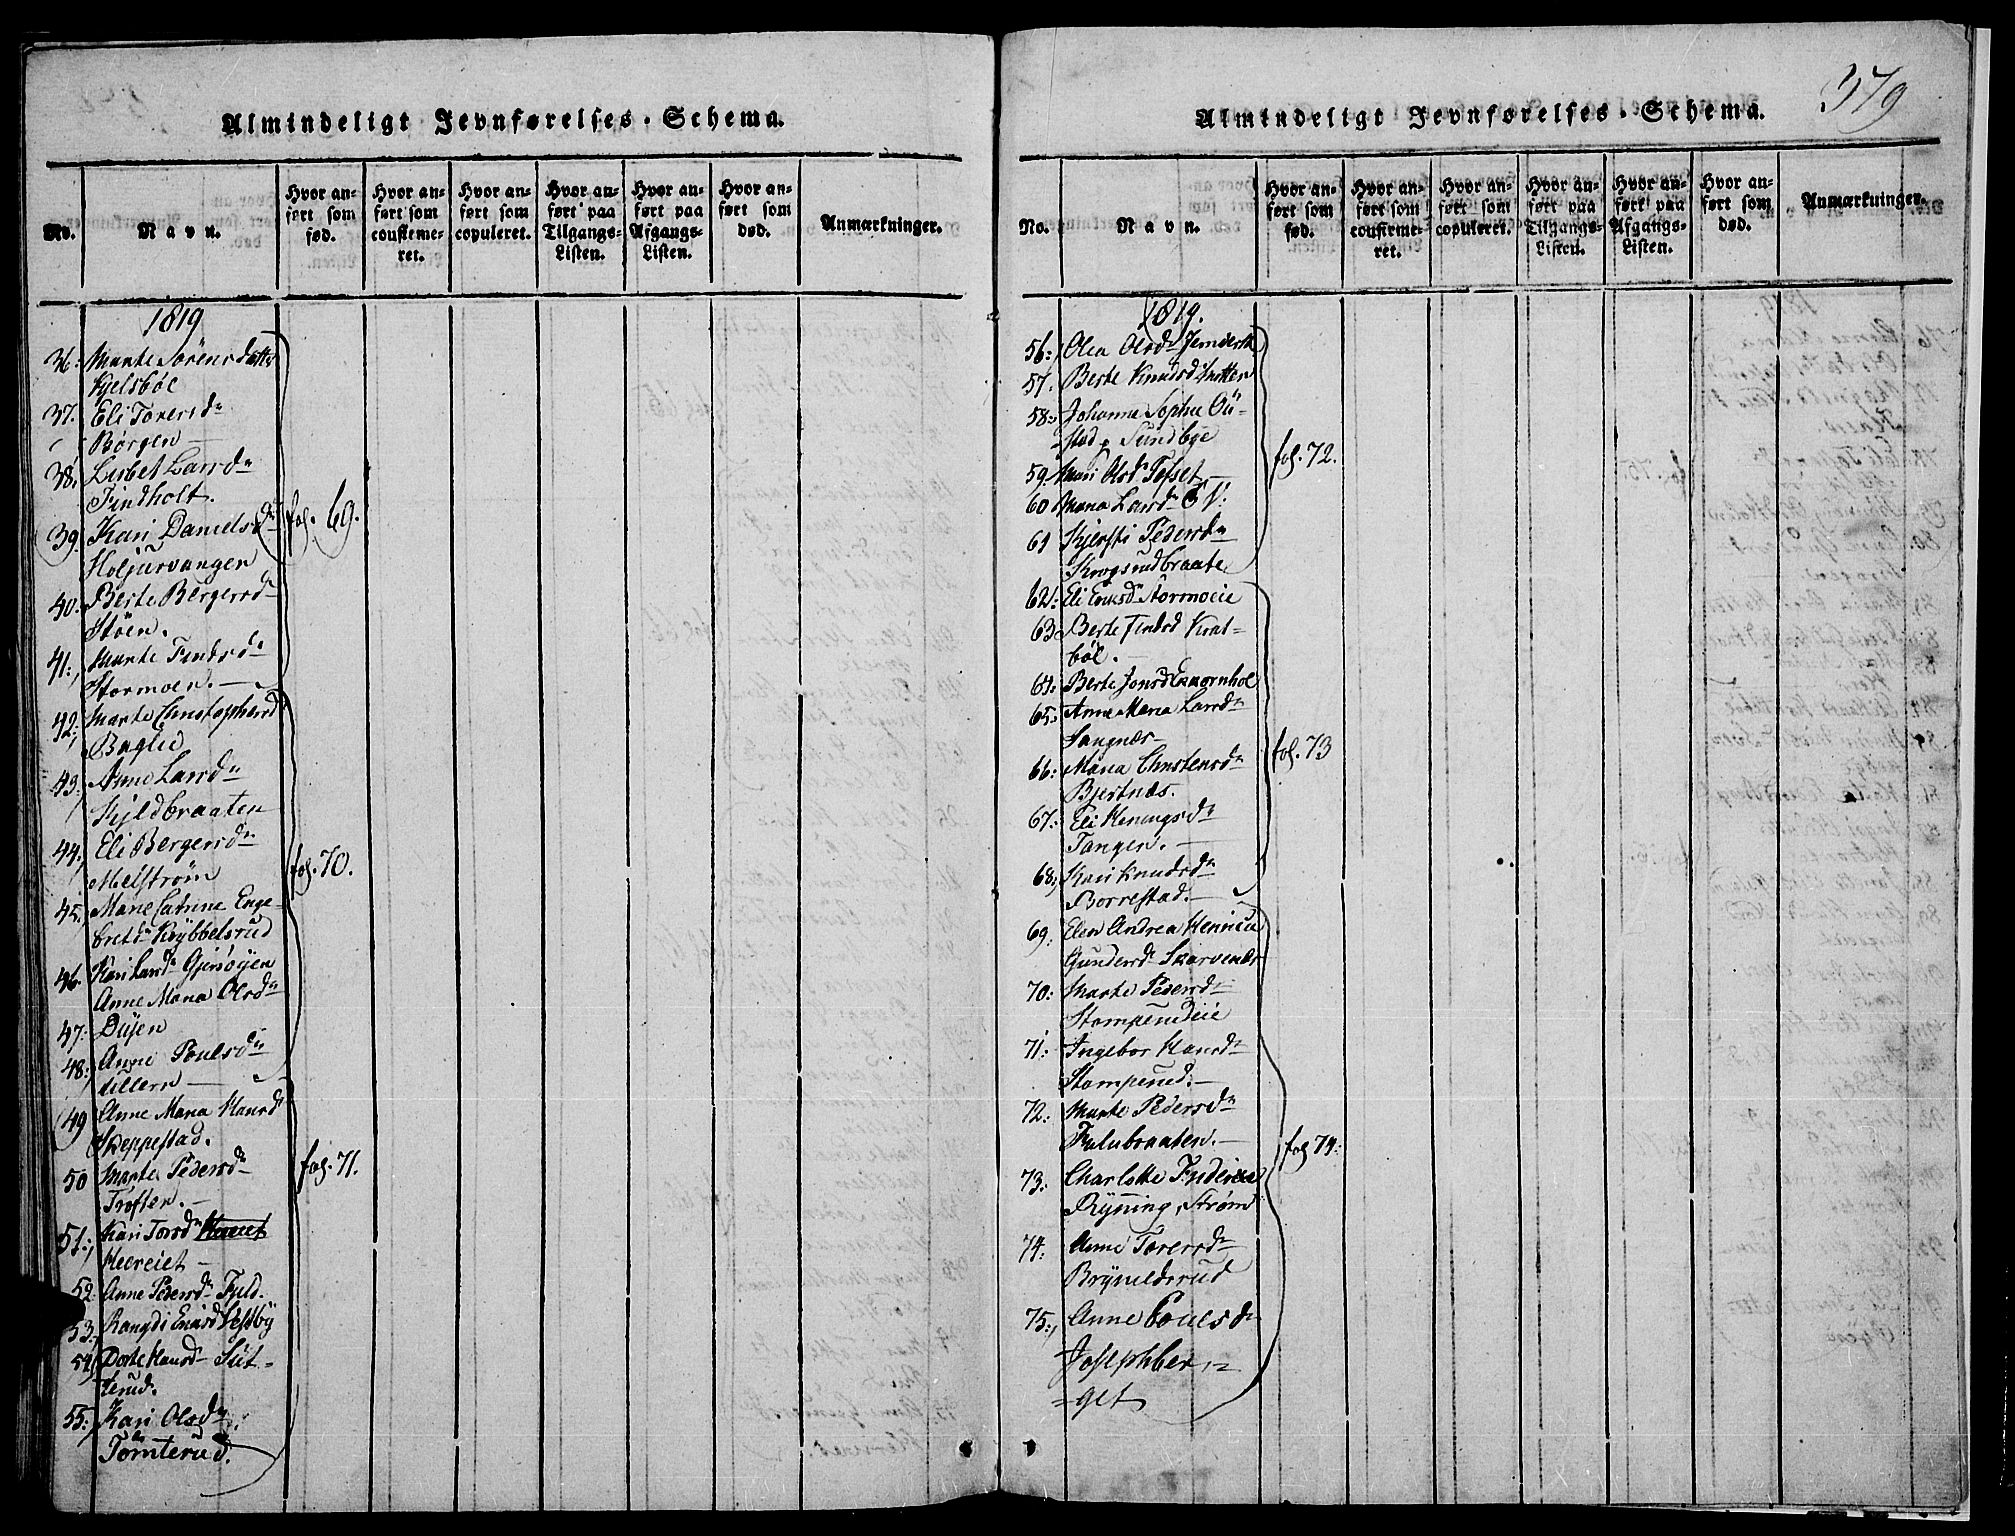 Almindeligt Jevnførelses-Schema.
No.
Navn.
Hvor an-
ført som
fød.
Hvor an-
ført som
confirme-
ret.
Hvor an-
ført som
copuleret.
Hvor an-
ført paa
Tilgangs-
Listen.
Hvor an-
ført paa
Afgangs-
Listen.
Hvor an-
ført som
død.
Anmærkninger.
1819
36: Marte Sörensdatter
Kjelsböe
37. Eli Toresd
Börgen
38. Lisbet Larsd
Findholt.
39. Kari Danielsd
Holjurvangen
fol. 69.
40: Berte Bergersd
Stöen.
41: Marte Findsd
Stormoen.
42: Marte Christophersd
Baglie
43: Anne Larsd
Kjeldbraaten
44: Eli Bergersd
Melström
fol. 70.
45. Marie Catrine Enge-
bretd Krybbelsrud
46. Kari Larsd Gjersöyen
Anne Maria Olsd
47: Dysen
48: Anne Poulsd
Lillern
49 Anne Maria Hansd
Skeppestad.
50 Marte Pedersd
Troften.
fol. 71.
51: Kari Torsd
Heereiet
52: Anne Pedersd Fjeld.
53: Rangdi Einarsd Vestby
54 Dorte Hansd Süt-
terud.
55: Kari Olsd
Tömterud.
Almindeligt Jevnførelses-Schema.
379
No.
Navn.
Hvor an-
ført som
fød.
Hvor an-
ført som
confirme-
ret.
Hvor an-
ført som
copuleret.
Hvor an-
ført paa
Tilgangs-
Listen.
Hvor an-
ført paa
Afgangs-
Listen.
Hvor an-
ført som
død.
Anmærkninger.
1819.
56: Olea Olsd
57. Berte Knudsd
58: Johanne Sophie Öü-
stad, Sundbye
59. Mari Olsd Tofset
60 Maria Larsd
61 Kjersti Pedersd
Krogsrudbraate
fol. 72.
62: Eli Eriksd Stormoeie
63 Berte Findsd Krat-
böl.
64: Berte Jonsd Exxornhol
65: Anne Maria Larsd
Sangnæs
66: Maria Christensd
Bjertnæs.
fol. 73
67: Eli Heningsd
Tangen.
68: Kari Knudsd
Borrestad.
69: Elen Andrea Henrica
Gundersd Skarvenæs
70: Marte Pedersd
Stomperudeie
71: Ingebor Hansd
Stomperud.
72: Marte Pedersd
Fulubraaten.
fol 74.
73: Charlotte Frederica
Ryning, Ström
74: Anne Toresd
Bryneldsrud
75: Anne Poulsd
Josephber-
get